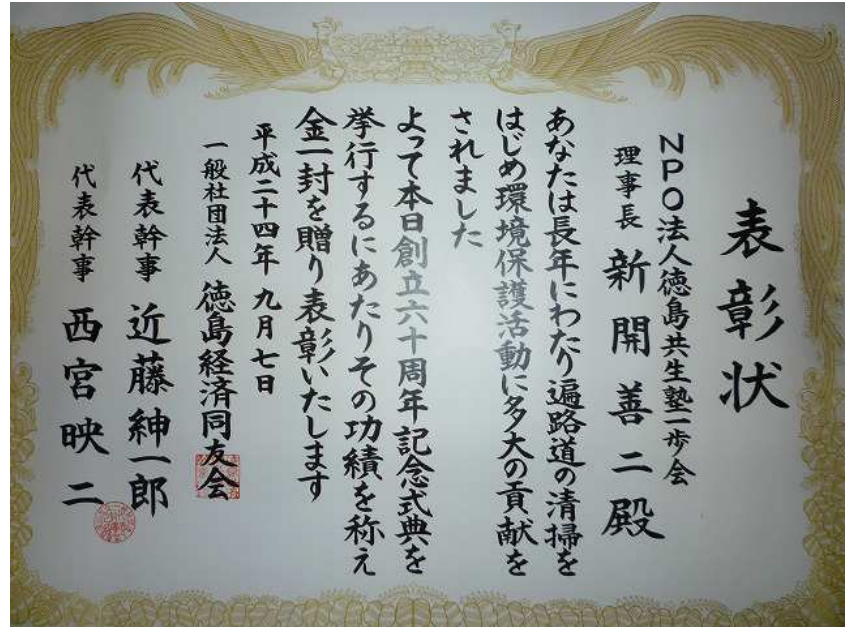 表彰状
NPO法人徳島共生塾一歩会
理事長 新開善二殿
あなたは長年にわたり遍路道の清掃を
はじめ環境保護活動に多大の貢献を
されました
よって本日創立六十周年記念式典を
挙行するにあたりその功績を称え
金一封を贈り表彰いたします
平成二十四年九月七日
一般社団法人 徳島経済同友会
代表幹事 近藤紳一郎
代表幹事 西宮映二